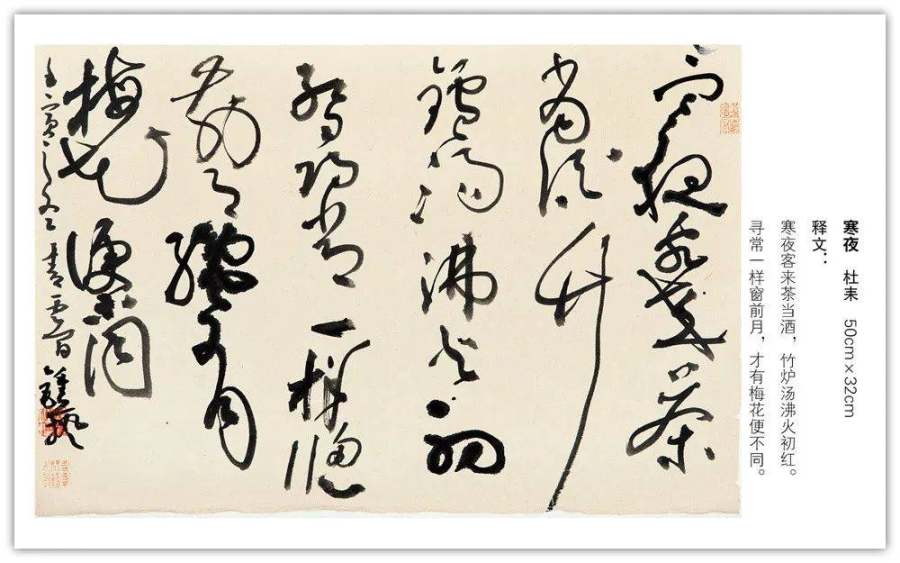 寒夜 杜耒 50cm×32cm
释文：
寒夜客来茶当酒，竹炉汤沸火初红。
寻常一样窗前月，才有梅花便不同。
寒夜客來茶
當酒竹
鑪湯沸火初
紅尋常一樣窗
前月纔有
梅花便不同